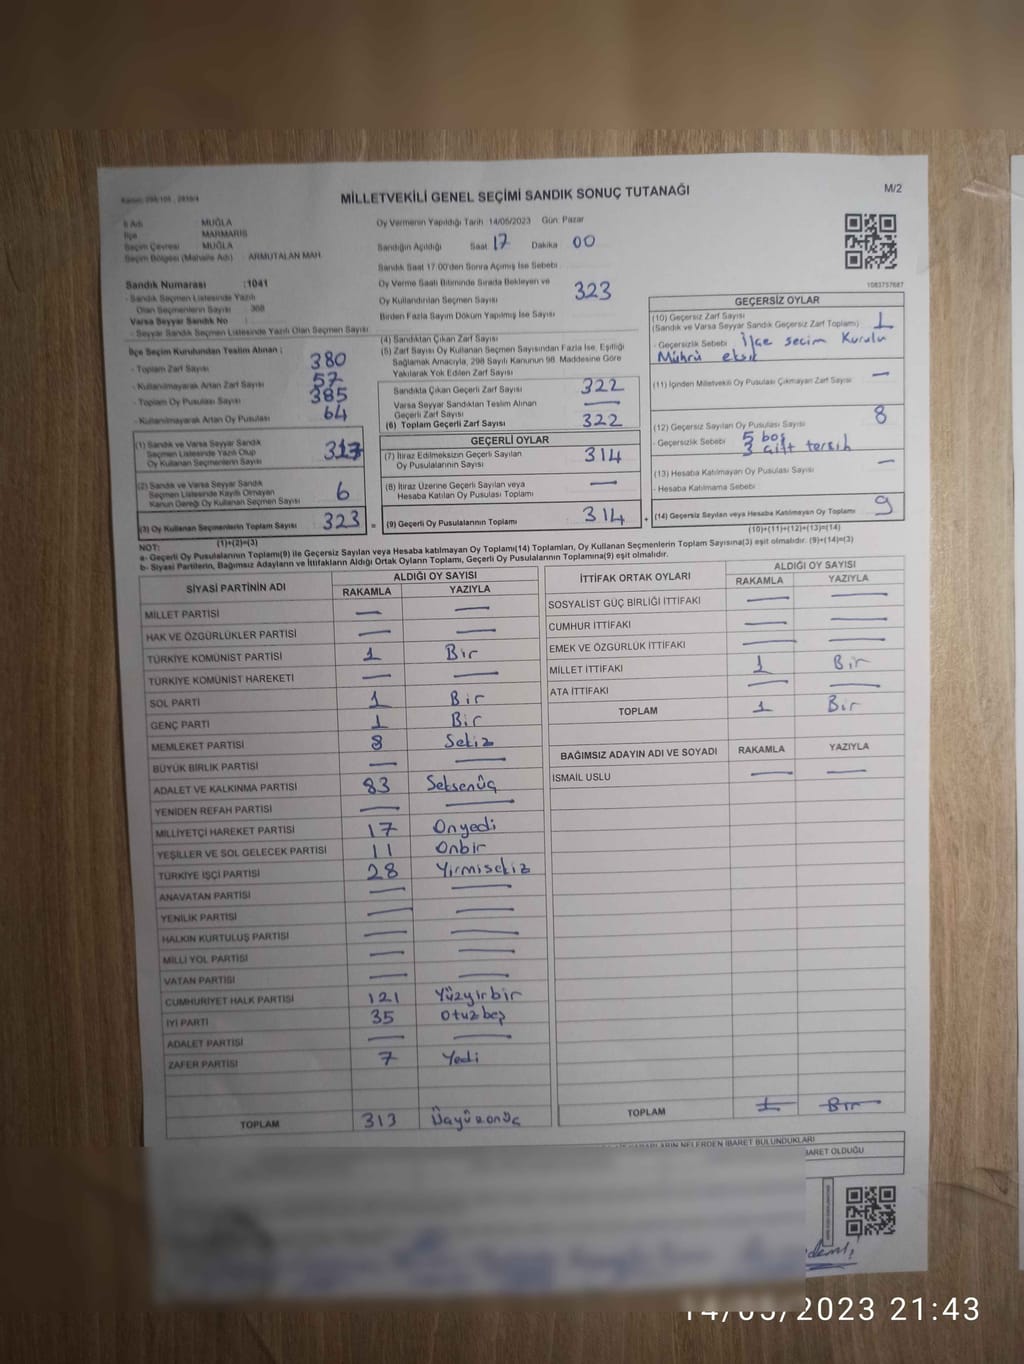 MİLLETVEKİLİ GENEL SEÇİMİ SANDIK SONUÇ TUTANAĞI
M/2
İl Adı MUĞLA
İlçe MARMARİS
Seçim Çevresi MUĞLA
Seçim Bölgesi (Mahalle Adı) ARMUTALAN MAH.
Oy Vermenin Yapıldığı Tarih :14/05/2023 Gün: Pazar
Sandığın Açıldığı Saat 17 Dakika 00
Sandık Saat 17:00'den Sonra Açılmış İse Sebebi
Sandık Numarası :1041
- Sandık Seçmen Listesinde Yazılı
Olan Seçmenlerin Sayısı : 368
Varsa Seyyar Sandık No
- Seyyar Sandık Seçmen Listesinde Yazılı Olan Seçmen Sayısı
Oy Verme Saati Bitiminde Sırada Bekleyen ve
Oy Kullandırılan Seçmen Sayısı 323
Birden Fazla Sayım Döküm Yapılmış İse Sayısı
1083757687
İlçe Seçim Kurulundan Teslim Alınan :
- Toplam Zarf Sayısı 380
- Kullanılmayarak Artan Zarf Sayısı 57
- Toplam Oy Pusulası Sayısı 385
- Kullanılmayarak Artan Oy Pusulası 64
(1) Sandık ve Varsa Seyyar Sandık
Seçmen Listesinde Yazılı Olup
Oy Kullanan Seçmenlerin Sayısı 317
(2) Sandık ve Varsa Seyyar Sandık
Seçmen Listesinde Kayıtlı Olmayan
Kanun Gereği Oy Kullanan Seçmen Sayısı 6
(3) Oy Kullanan Seçmenlerin Toplam Sayısı 323 =
(1)+(2)=(3)
(4) Sandıktan Çıkan Zarf Sayısı
(5) Zarf Sayısı Oy Kullanan Seçmen Sayısından Fazla İse, Eşitliği
Sağlamak Amacıyla, 298 Sayılı Kanunun 98. Maddesine Göre
Yakılarak Yok Edilen Zarf Sayısı
Sandıkta Çıkan Geçerli Zarf Sayısı 322
Varsa Seyyar Sandıktan Teslim Alınan
Geçerli Zarf Sayısı —
(6) Toplam Geçerli Zarf Sayısı 322
GEÇERLİ OYLAR
(7) İtiraz Edilmeksizin Geçerli Sayılan
Oy Pusulalarının Sayısı 314
(8) İtiraz Üzerine Geçerli Sayılan veya
Hesaba Katılan Oy Pusulası Toplamı —
(9) Geçerli Oy Pusulalarının Toplamı 314 +
GEÇERSİZ OYLAR
(10) Geçersiz Zarf Sayısı
(Sandık ve Varsa Seyyar Sandık Geçersiz Zarf Toplamı) 1
- Geçersizlik Sebebi İlçe seçim Kurulu
Mührü eksik
(11) İçinden Milletvekili Oy Pusulası Çıkmayan Zarf Sayısı —
(12) Geçersiz Sayılan Oy Pusulası Sayısı 8
- Geçersizlik Sebebi 5 boş
3 çift tercih
(13) Hesaba Katılmayan Oy Pusulası Sayısı —
- Hesaba Katılmama Sebebi
(14) Geçersiz Sayılan veya Hesaba Katılmayan Oy Toplamı 9
(10)+(11)+(12)+(13)=(14)
NOT:
a- Geçerli Oy Pusulalarının Toplamı(9) ile Geçersiz Sayılan veya Hesaba katılmayan Oy Toplamı(14) Toplamları, Oy Kullanan Seçmenlerin Toplam Sayısına(3) eşit olmalıdır. (9)+(14)=(3)
b- Siyasi Partilerin, Bağımsız Adayların ve İttifakların Aldığı Ortak Oyların Toplamı, Geçerli Oy Pusulalarının Toplamına(9) eşit olmalıdır.
SİYASİ PARTİNİN ADI
ALDIĞI OY SAYISI
RAKAMLA YAZIYLA
MİLLET PARTİSİ — —
HAK VE ÖZGÜRLÜKLER PARTİSİ — —
TÜRKİYE KOMÜNİST PARTİSİ 1 Bir
TÜRKİYE KOMÜNİST HAREKETİ — —
SOL PARTİ 1 Bir
GENÇ PARTİ 1 Bir
MEMLEKET PARTİSİ 8 Sekiz
BÜYÜK BİRLİK PARTİSİ — —
ADALET VE KALKINMA PARTİSİ 83 Seksenüç
YENİDEN REFAH PARTİSİ — —
MİLLİYETÇİ HAREKET PARTİSİ 17 Onyedi
YEŞİLLER VE SOL GELECEK PARTİSİ 11 Onbir
TÜRKİYE İŞÇİ PARTİSİ 28 Yirmisekiz
ANAVATAN PARTİSİ — —
YENİLİK PARTİSİ — —
HALKIN KURTULUŞ PARTİSİ — —
MİLLİ YOL PARTİSİ — —
VATAN PARTİSİ — —
CUMHURİYET HALK PARTİSİ 121 Yüzyirbir
İYİ PARTİ 35 Otuzbeş
ADALET PARTİSİ — —
ZAFER PARTİSİ 7 Yedi
TOPLAM 313 Üçyüzonüç
İTTİFAK ORTAK OYLARI
ALDIĞI OY SAYISI
RAKAMLA YAZIYLA
SOSYALİST GÜÇ BİRLİĞİ İTTİFAKI — —
CUMHUR İTTİFAKI — —
EMEK VE ÖZGÜRLÜK İTTİFAKI — —
MİLLET İTTİFAKI 1 Bir
ATA İTTİFAKI — —
TOPLAM 1 Bir
BAĞIMSIZ ADAYIN ADI VE SOYADI RAKAMLA YAZIYLA
İSMAİL USLU — —
TOPLAM 1 Bir
NELERDEN İBARET BULUNDUKLARI
BARET OLDUĞU
14/05/2023 21:43